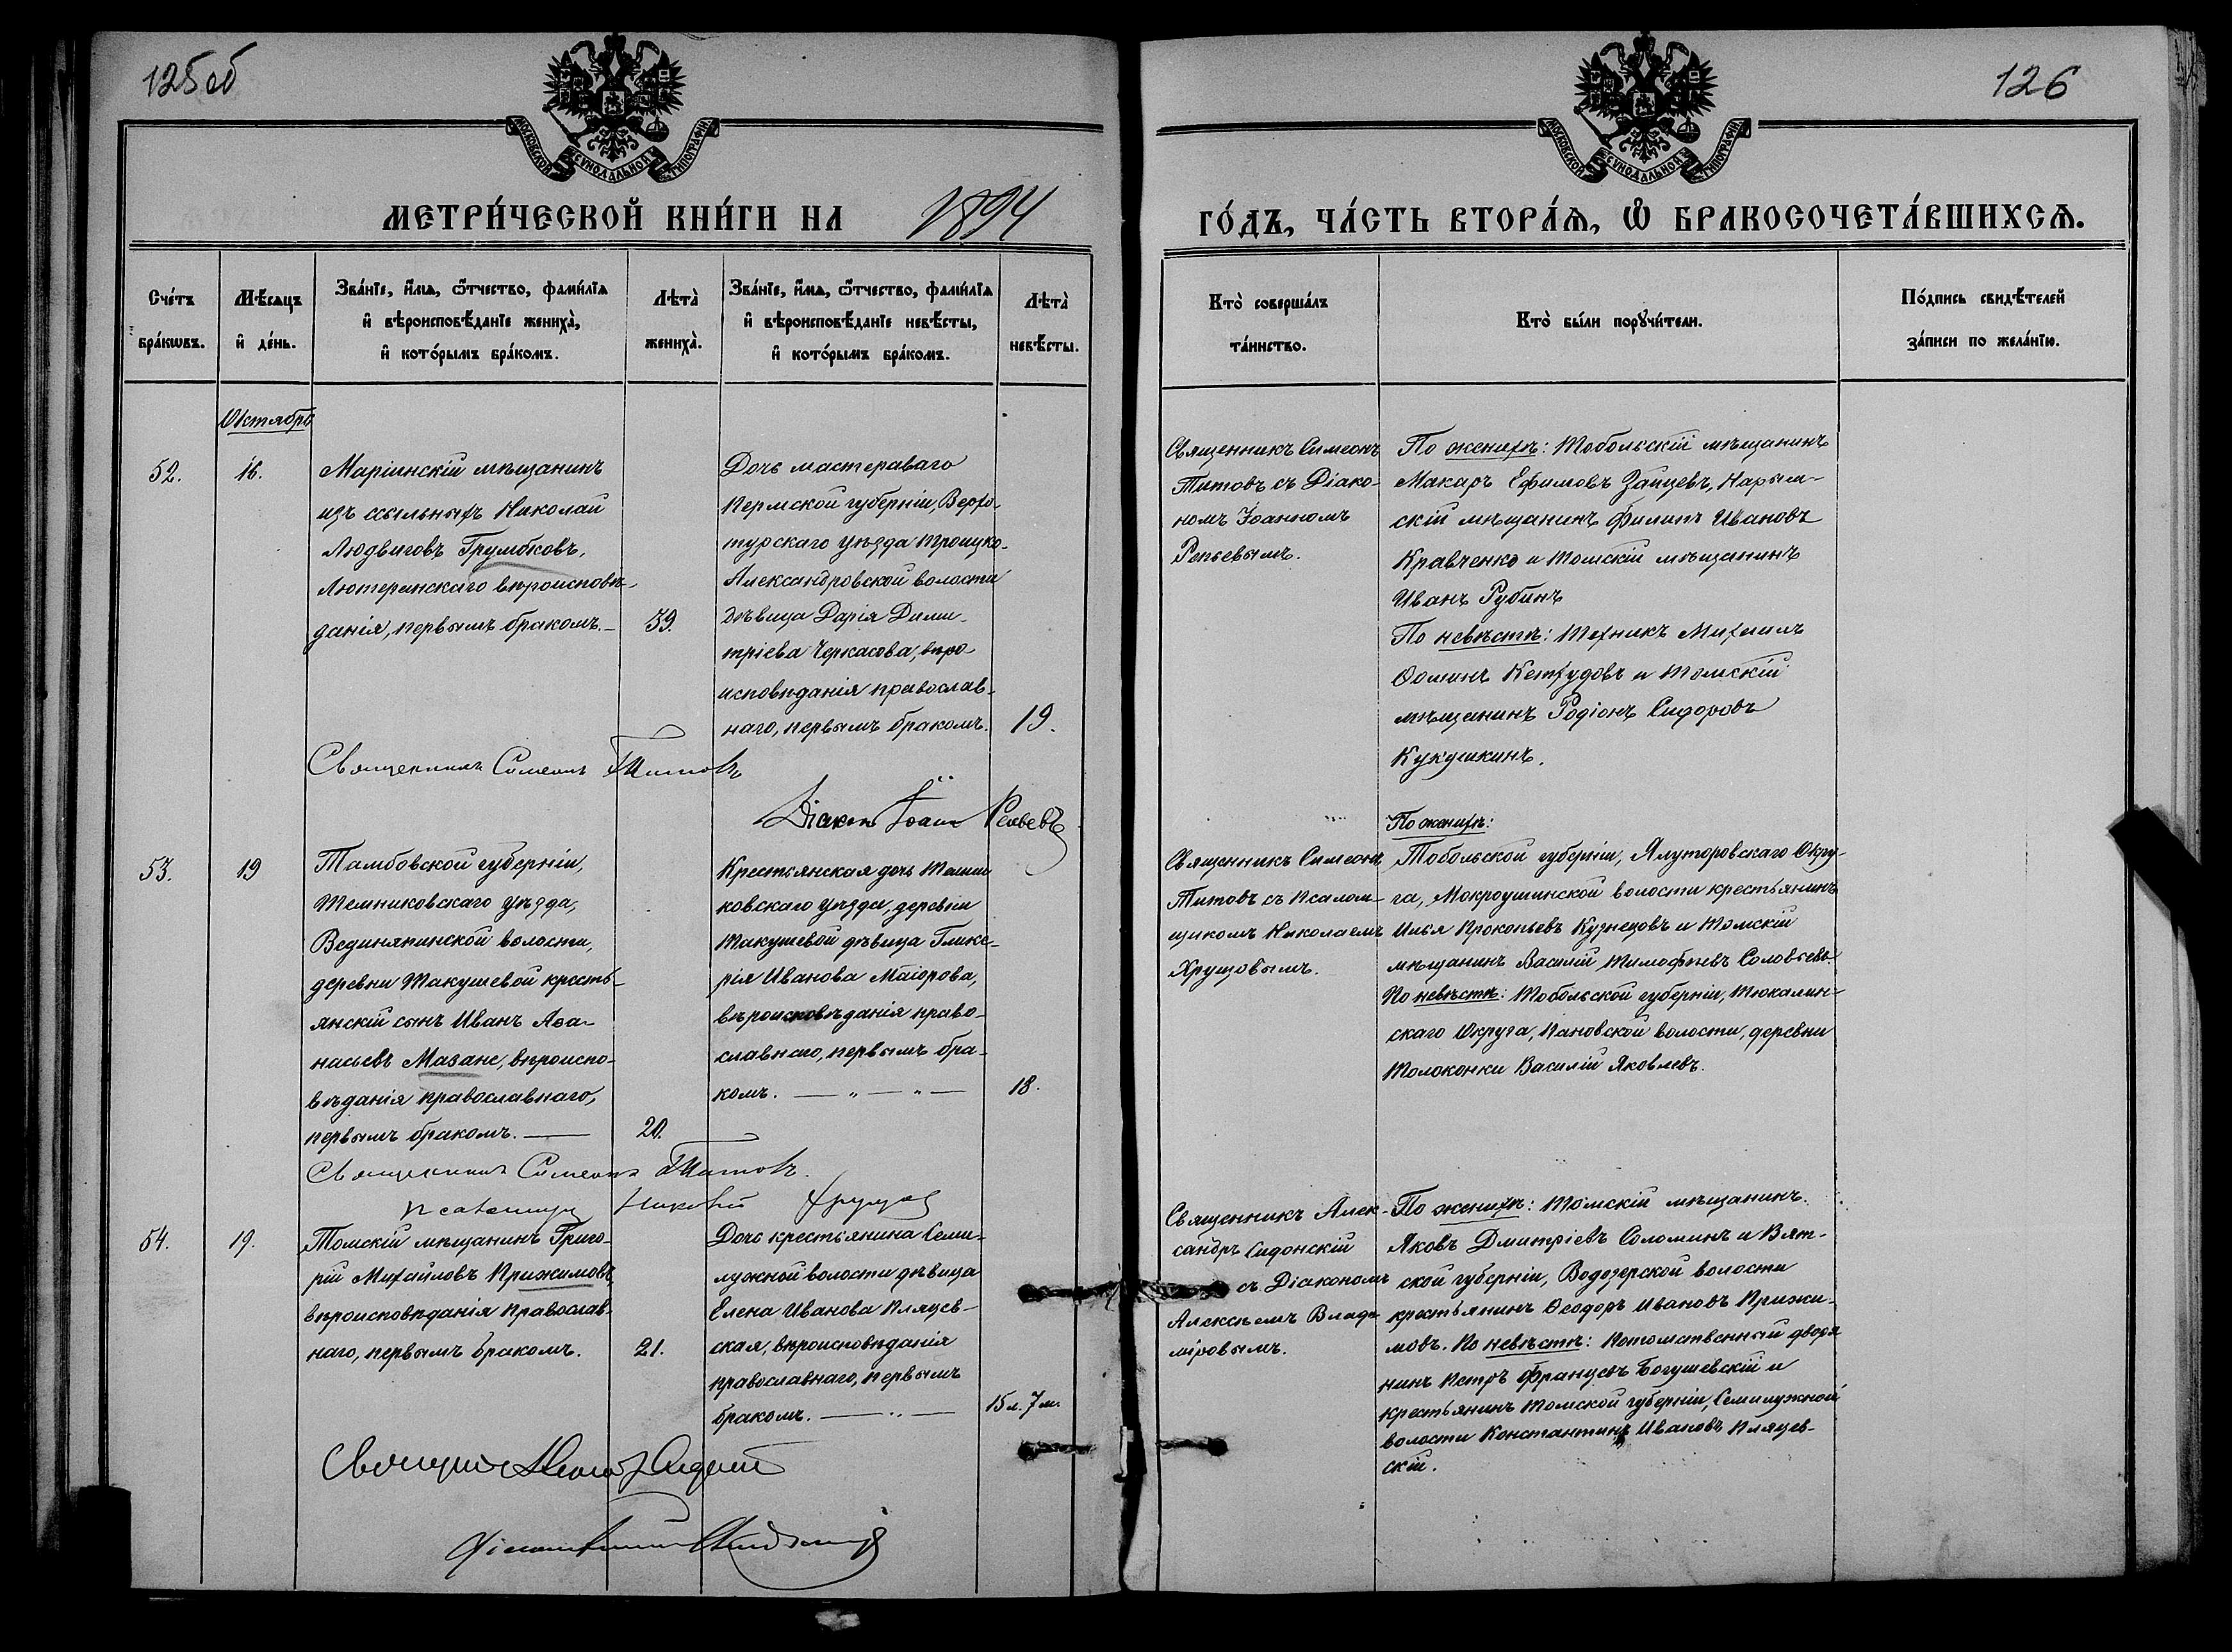 125 об
126
МОСКОВСКОЙ СѴНОДАЛЬНОЙ ТИПОГРАФІИ
МОСКОВСКОЙ СѴНОДАЛЬНОЙ ТИПОГРАФІИ
МЕТРИ́ЧЕСКОЙ КНИ́ГИ НА 1894
ГО́ДЪ, ЧА́СТЬ ВТОРА́Ѧ, Ѡ БРАКОСОЧЕТА́ВШИХСѦ.
Сче́тъ
бра́кѡвъ.
Мѣ́сѧцъ
и де́нь.
Зва́нїе, и́мѧ, ѻ́тчество, фами́лїѧ
и вѣроисповѣ́данїе жениха̀,
и кото́рымъ бра́комъ.
Лѣта̀
жениха̀.
Зва́нїе, и́мѧ, ѻ́тчество, фами́лїѧ
и вѣроисповѣ́данїе невѣ́сты,
и кото́рымъ бра́комъ.
Лѣта̀
невѣ́сты.
Кто̀ соверша́лъ
та́инство.
Кто̀ бы́ли порꙋчи́тели.
По́дпись свидѣ́телей
за́писи по жела́нїю.
Октябрь
52.
16.
Маріинскій мѣщанинъ
изъ ссыльныхъ Николай
Людвиговъ Грумбковъ,
лютеранскаго вѣроисповѣ-
данія, первымъ бракомъ. —
39.
Дочь мастероваго
Пермской губерніи, Верхо-
турскаго уѣзда Троицко-
Александровской волости
дѣвица Дарія Дими-
тріева Черкасова, вѣро-
исповѣданія православ-
наго, первымъ бракомъ.
19.
Священникъ Симеонъ
Титовъ съ Діако-
номъ Іоанномъ
Репьевымъ.
По женихѣ: Тобольскій мѣщанинъ
Макаръ Ефимовъ Зайцевъ, Нарым-
скій мѣщанинъ Филипъ Ивановъ
Кравченко и Томскій мѣщанинъ
Иванъ Рубинъ
По невѣстѣ: Техникъ Михаилъ
Ѳоминъ Кетхудовъ и Томскій
мѣщанинъ Родіонъ Сидоровъ
Кукушкинъ.
Священникъ Симеонъ Титовъ
Діаконъ Іоаннъ Репьевъ
53.
19
Тамбовской губерніи,
Темниковскаго уѣзда,
Веденяпинской волости,
деревни Макушевой кресть-
янскій сынъ Иванъ Аѳа-
насьевъ Мазане, вѣроиспо-
вѣданія православнаго,
первымъ бракомъ. —
20.
Крестьянская дочь Темни-
ковскаго уѣзда, деревни
Макушевой дѣвица Глике-
рія Иванова Маіорова,
вѣроисповѣданія право-
славнаго, первымъ бра-
комъ. — „ — „ —
18.
Священникъ Симеонъ
Титовъ съ Псалом-
щикомъ Николаемъ
Хрущовымъ.
По женихѣ:
Тобольской губерніи, Ялуторовскаго Окру-
га, Мокроушинской волости крестьянинъ
Илья Прокопьевъ Кузнецовъ и Томскій
мѣщанинъ Василій Тимофѣевъ Соловьевъ.
По невѣстѣ: Тобольской губерніи, Тюкалин-
скаго Округа, Пановской волости, деревни
Молоконки Василій Яковлевъ.
Священникъ Симеонъ Титовъ.
Псаломщикъ Николай Хрущов
54.
19.
Томскій мѣщанинъ Григо-
рій Михайловъ Прижимовъ,
вѣроисповѣданія православ-
наго, первымъ бракомъ.
21.
Дочь крестьянина Семи-
лужной волости дѣвица
Елена Иванова Пляцев-
ская, вѣроисповѣданія
православнаго, первымъ
бракомъ. — „ —
15 л. 7 м.
Священникъ Алек-
сандръ Сидонскій
съ Діакономъ
Алексѣемъ Влади-
міровымъ.
По женихѣ: Томскій мѣщанинъ
Яковъ Дмитріевъ Соломинъ и Вят-
ской губерніи, Водозерской волости
крестьянинъ Ѳеодоръ Ивановъ Прижи-
мовъ. По невѣстѣ: Потомственный дворя
нинъ Петръ Францевъ Богушевскій и
крестьянинъ Томской губерніи, Семилужной
волости Константинъ Ивановъ Пляцев-
скій.